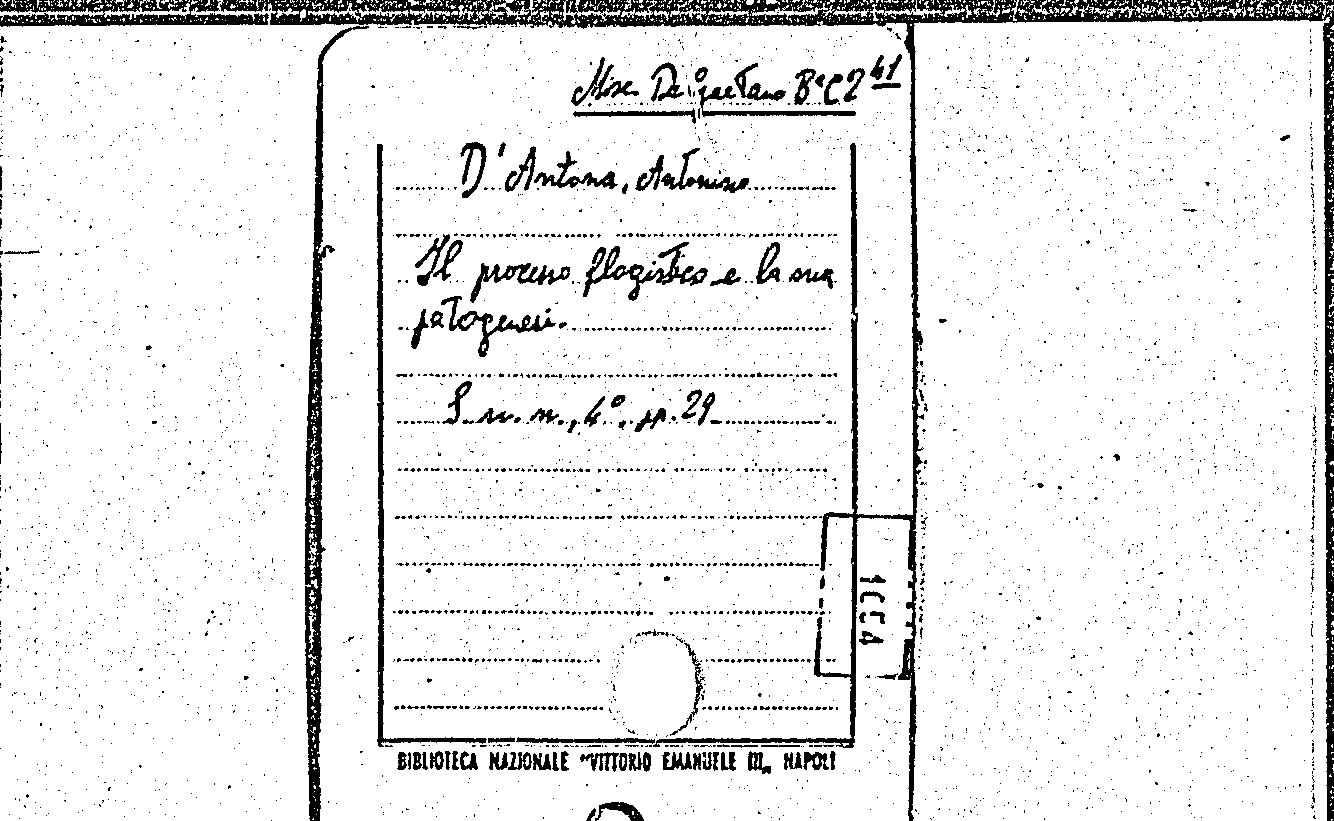 Misc. De Gaetano B^a C 2 41
D'Antona, Antonino
Il processo flogistico e la sua
patogenesi.
S. n. n., 4°. pp. 29
BIBLIOTECA NAZIONALE "VITTORIO EMANUELE III„ NAPOLI